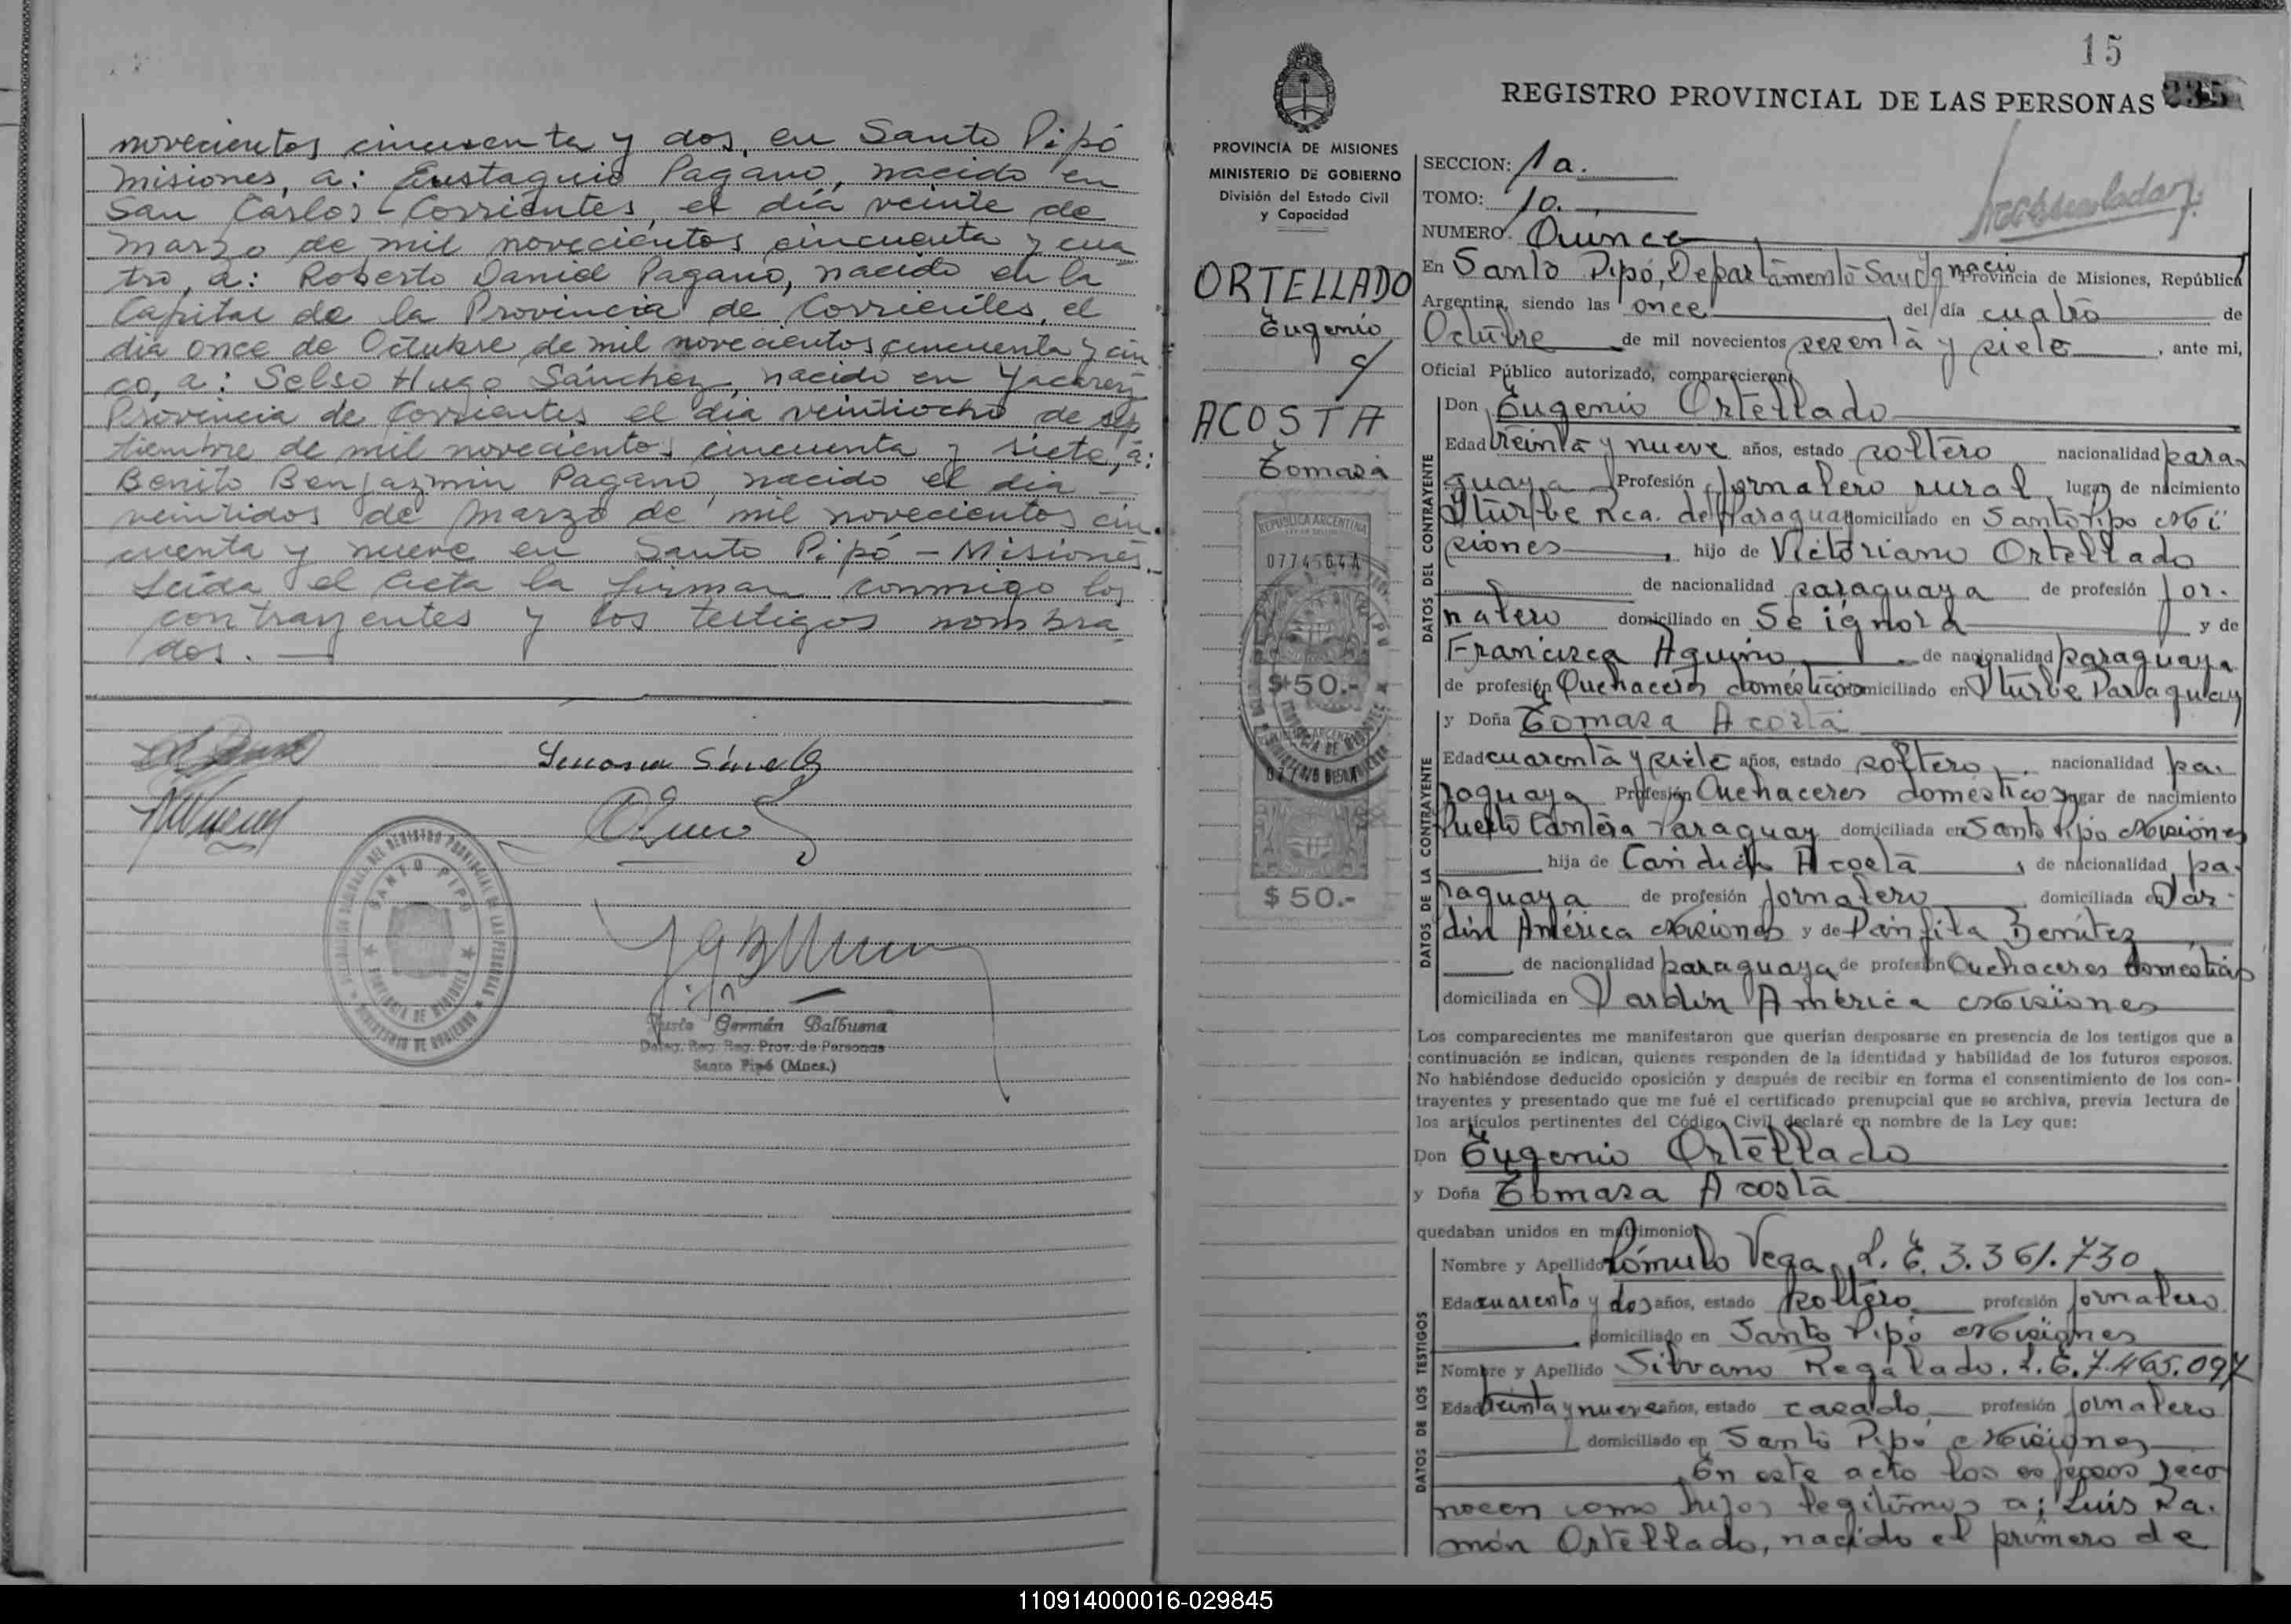 novecientos cincuenta y dos, en Santo Pipó
Misiones, a: Eustaquio Pagano, nacido en
San Carlos - Corrientes, el día veinte de
marzo de mil novecientos cincuenta y cua
tro, a: Roberto Daniel Pagano, nacido en la
Capital de la Provincia de Corrientes, el
día once de Octubre de mil novecientos cincuenta y cin
co, a: Selso Hugo Sánchez, nacido en Yacarey
Provincia de Corrientes el día veintiocho de sep
tiembre de mil novecientos cincuenta y siete, a:
Benito Benjazmin Pagano, nacido el día
veintidos de Marzo de mil novecientos cin
cuenta y nueve en Santo Pipó - Misiones.
Leída el Acta la firman conmigo los
contrayentes y los testigos nombra
dos.
SANTO PIPO
Justo Germán Balbuena
Deleg. Reg. Prov. de Personas
Santo Pipó (Mnes.)
15
REGISTRO PROVINCIAL DE LAS PERSONAS 235
PROVINCIA DE MISIONES
MINISTERIO DE GOBIERNO
División del Estado Civil
y Capacidad
ORTELLADO
Eugenio
y
ACOSTA
Tomasa
REPUBLICA ARGENTINA
$ 50.-
$ 50.-
SECCION: 1a.
TOMO: 10.
NUMERO: Quince
En Santo Pipó, Departamento San Ignacio Provincia de Misiones, República
Argentina, siendo las once del día cuatro de
Octubre de mil novecientos sesenta y siete, ante mi,
Oficial Público autorizado, comparecieron:
DATOS DEL CONTRAYENTE
Don Eugenio Ortellado
Edad treinta y nueve años, estado soltero nacionalidad para
guaya Profesión Jornalero rural, lugar de nacimiento
Iturbe Rca. del Paraguay domiciliado en Santo Pipo Mi
siones, hijo de Victoriano Ortellado
de nacionalidad paraguaya de profesión Jor-
nalero domiciliado en Se ignora y de
Francisca Aquino de nacionalidad paraguaya
de profesión Quehaceres domésticos domiciliado en Iturbe Paraguay
DATOS DE LA CONTRAYENTE
y Doña Tomasa Acosta
Edad cuarenta y siete años, estado soltero, nacionalidad pa
raguaya Profesión Quehaceres domésticos lugar de nacimiento
Puerto Cantera Paraguay domiciliada en Santo Pipo Misiones
hija de Candido Acosta, de nacionalidad pa-
raguaya de profesión Jornalero domiciliada en Jar-
din América Misiones y de Panfila Benítez
de nacionalidad paraguaya de profesión Quehaceres domésticos
domiciliada en Jardín América Misiones
Los comparecientes me manifestaron que querían desposarse en presencia de los testigos que a
continuación se indican, quienes responden de la identidad y habilidad de los futuros esposos.
No habiéndose deducido oposición y después de recibir en forma el consentimiento de los con-
trayentes y presentado que me fué el certificado prenupcial que se archiva, previa lectura de
los artículos pertinentes del Código Civil declaré en nombre de la Ley que:
Don Eugenio Ortellado
y Doña Tomasa Acosta
quedaban unidos en matrimonio
DATOS DE LOS TESTIGOS
Nombre y Apellido Rómulo Vega, L. E. 3.361.730
Edad cuarenta y dos años, estado soltero profesión Jornalero
domiciliado en Santo Pipó Misiones
Nombre y Apellido Silvano Regalado. L. E. 7.465.097
Edad treinta y nueve años, estado casado, profesión Jornalero
domiciliado en Santo Pipó Misiones
En este acto los esposos reco
nocen como hijos legítimos a: Luis Ra-
món Ortellado, nacido el primero de
110914000016-029845